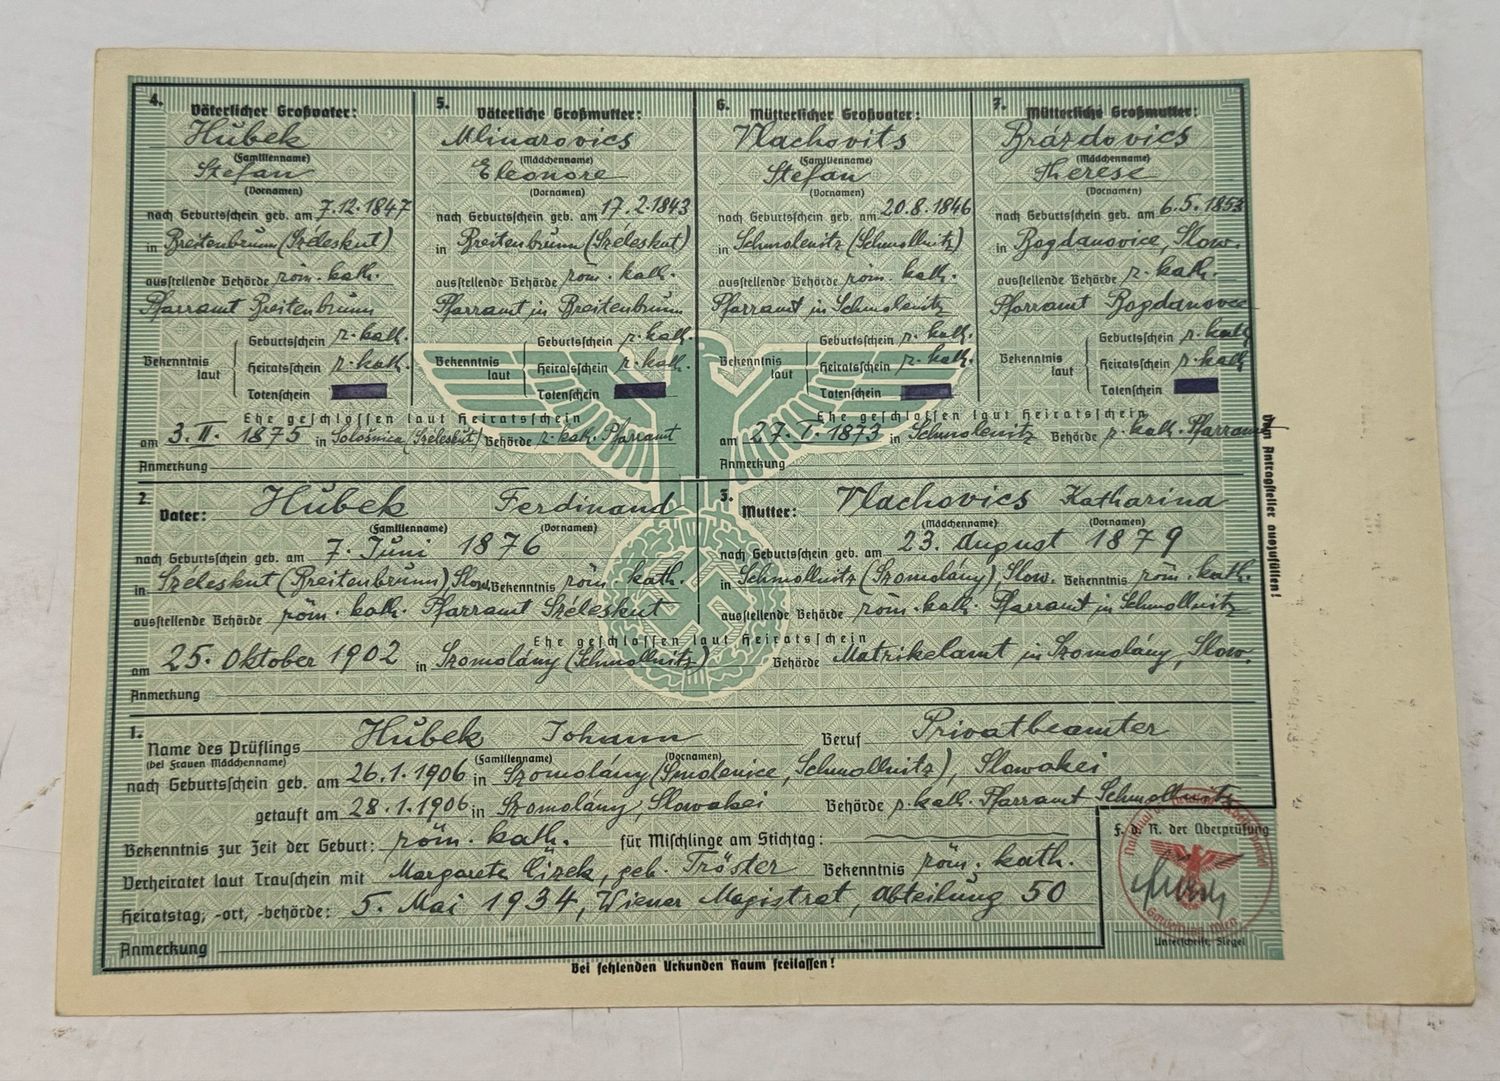 4. Väterlicher Großvater:
Hubek
(Familienname)
Stefan
(Vornamen)
nach Geburtsschein geb. am 7.12.1847
in Breitenbrunn (Széleskut)
ausstellende Behörde röm. kath.
Pfarramt Breitenbrunn
Bekenntnis laut
Geburtsschein r. kath.
Heiratsschein r. kath.
Totenschein
5. Väterliche Großmutter:
Mlinarovics
(Mädchenname)
Eleonore
(Vornamen)
nach Geburtsschein geb. am 17.2.1843
in Breitenbrunn (Széleskut)
ausstellende Behörde röm. kath.
Pfarramt in Breitenbrunn
Bekenntnis laut
Geburtsschein r. kath.
Heiratsschein r. kath.
Totenschein
Ehe geschlossen laut Heiratsschein
am 3. II. 1875 in Solosnica (Széleskut) Behörde r. kath. Pfarramt
Anmerkung
6. Mütterlicher Großvater:
Vlachovits
(Familienname)
Stefan
(Vornamen)
nach Geburtsschein geb. am 20.8.1846
in Schmolenitz (Schmollnitz)
ausstellende Behörde röm. kath.
Pfarramt in Schmolenitz
Bekenntnis laut
Geburtsschein r. kath.
Heiratsschein r. kath.
Totenschein
7. Mütterliche Großmutter:
Brázdovics
(Mädchenname)
Therese
(Vornamen)
nach Geburtsschein geb. am 6.5.1853
in Bogdanovice, Slow.
ausstellende Behörde r. kath.
Pfarramt Bogdanovce
Bekenntnis laut
Geburtsschein r. kath
Heiratsschein r. kath
Totenschein
Ehe geschlossen laut Heiratsschein
am 27. I. 1873 in Schmolenitz Behörde r. kath. Pfarramt
Anmerkung
2. Vater: Hubek Ferdinand
(Familienname) (Vornamen)
nach Geburtsschein geb. am 7. Juni 1876
in Széleskut (Breitenbrunn) Slow. Bekenntnis röm. kath.
ausstellende Behörde röm. kath. Pfarramt Széleskut
3. Mutter: Vlachovics Katharina
(Mädchenname) (Vornamen)
nach Geburtsschein geb. am 23. August 1879
in Schmollnitz (Szomolány), Slow. Bekenntnis röm. kath.
ausstellende Behörde röm. kath. Pfarramt in Schmollnitz
Ehe geschlossen laut Heiratsschein
am 25. Oktober 1902 in Szomolány (Schmollnitz) Behörde Matrikelamt in Szomolány, Slow.
Anmerkung
1. Name des Prüflings Hubek Johann Beruf Privatbeamter
(bei Frauen Mädchenname) (Familienname) (Vornamen)
nach Geburtsschein geb. am 26.1.1906 in Szomolány (Smolenice, Schmollnitz), Slowakei
getauft am 28.1.1906 in Szomolány, Slowakei Behörde r. kath. Pfarramt Schmollnitz
Bekenntnis zur Zeit der Geburt: röm. kath. für Mischlinge am Stichtag:
Verheiratet laut Trauschein mit Margarete Cizek, geb. Tröster Bekenntnis röm. kath.
Heiratstag, -ort, -behörde: 5. Mai 1934, Wiener Magistrat, Abteilung 50
Anmerkung
F. d. R. der Überprüfung
Gauleitung Wien
Unterschrift, Siegel
Vom Antragsteller auszufüllen!
Bei fehlenden Urkunden Raum freilassen!